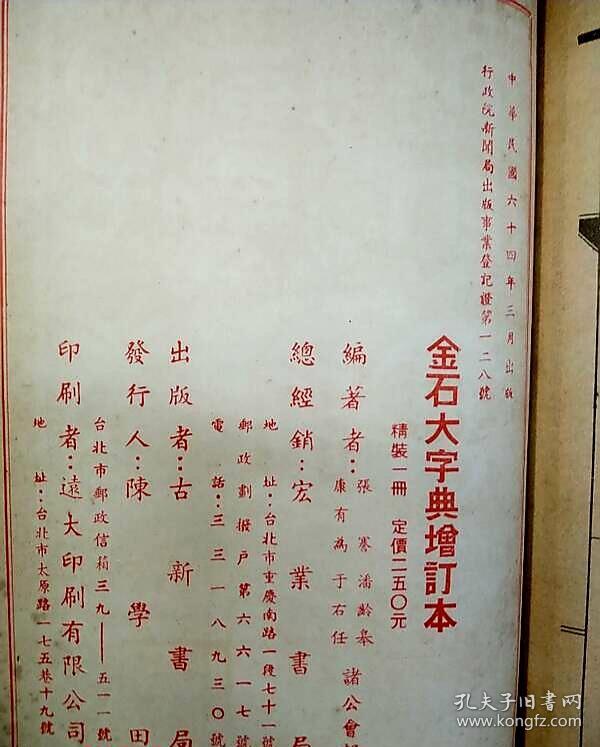 中華民國六十四年三月出版
行政院新聞局出版事業登記證第一二八號
金石大字典增訂本
精裝一冊 定價二五〇元
編著者：張謇 潘齡皋 康有為 于右任 諸公會
總經銷：宏業書局
地址：台北市重慶南路一段七十一號
郵政劃撥戶第六六一七號
電話：三三一八九三〇號
出版者：古新書局
發行人：陳學田
台北市郵政信箱三九——五一一號
印刷者：遠大印刷有限公司
地址：台北市太原路一七五巷十九號
孔夫子旧书网
www.kongfz.com